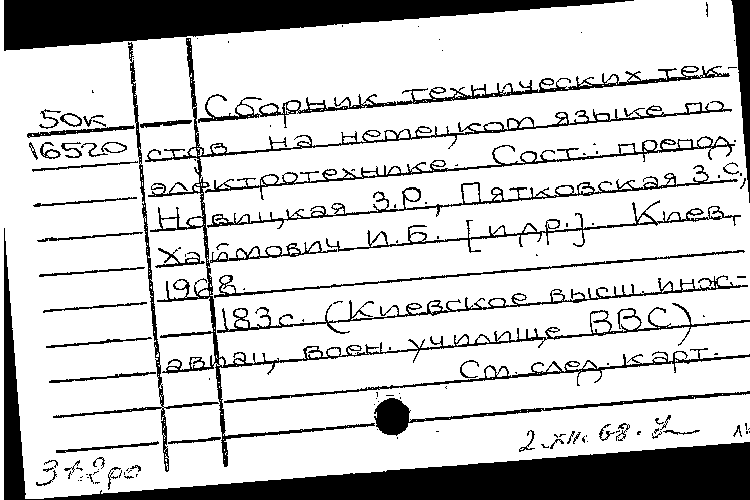 50к Сборник технических тек-
16520 стов на немецком языке по
электротехнике. Сост.: препод.
Новицкая З.Р., Пятковская З.С.,
Хаймович И.Б. [и др.]. Киев,
1968.
183с. (Киевское высш. инж.-
авиац. воен. училище ВВС).
См. след. карт.
2.XII.68.